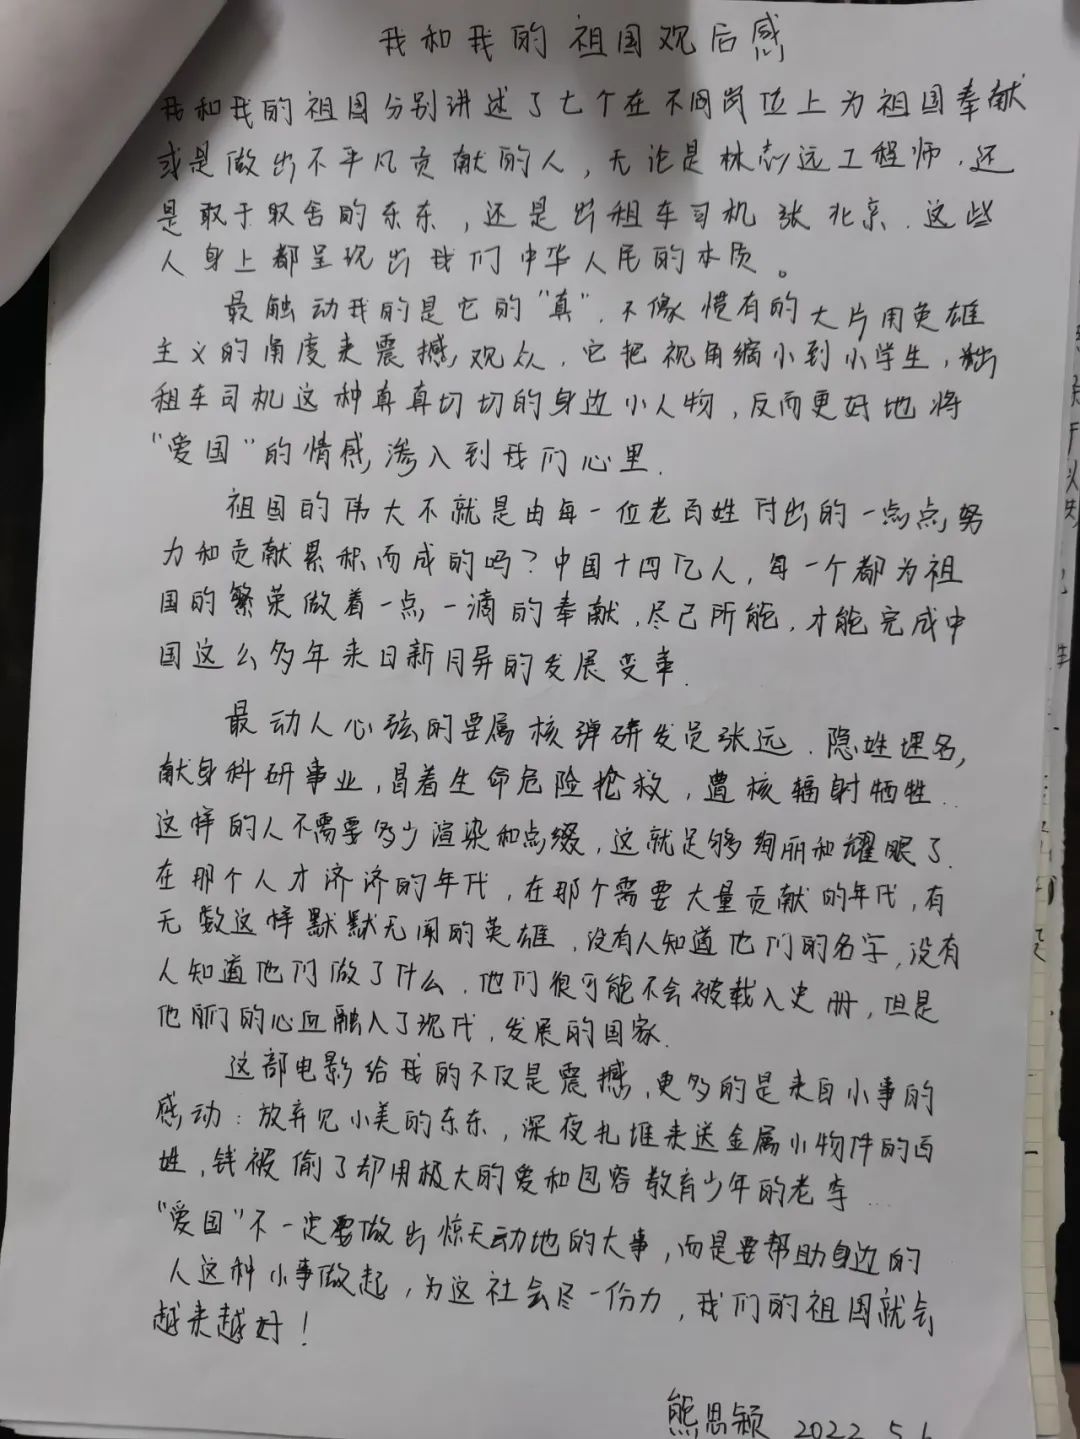 我和我的祖国观后感
我和我的祖国分别讲述了七个在不同岗位上为祖国奉献
或是做出不平凡贡献的人，无论是林志远工程师.还
是敢于取舍的东东，还是出租车司机张北京.这些
人身上都呈现出我们中华人民的本质。
最触动我的是它的“真”.不像惯有的大片用英雄
主义的角度来震撼观众.它把视角缩小到小学生，出
租车司机这种真真切切的身边小人物，反而更好地将
“爱国”的情感渗入到我们心里.
祖国的伟大不就是由每一位老百姓付出的一点点努
力和贡献累积而成的吗？中国十四亿人，每一个都为祖
国的繁荣做着一点一滴的奉献.尽己所能.才能完成中
国这么多年来日新月异的发展变革.
最动人心弦的要属核弹研发员张远.隐姓埋名，
献身科研事业，冒着生命危险抢救，遭核辐射牺牲...
这样的人不需要多少渲染和点缀，这就足够绚丽和耀眼了.
在那个人才济济的年代，在那个需要大量贡献的年代，有
无数这样默默无闻的英雄，没有人知道他们的名字，没有
人知道他们做了什么.他们很可能不会被载入史册，但是
他们的心血融入了现代，发展的国家.
这部电影给我的不仅是震撼，更多的是来自小事的
感动：放弃见小美的东东，深夜扎堆来送金属小物件的百
姓，钱被偷了却用极大的爱和包容教育少年的老李...
“爱国”不一定要做出惊天动地的大事，而是要帮助身边的
人这种小事做起，为这社会尽一份力，我们的祖国就会
越来越好！
熊思颖 2022.5.1